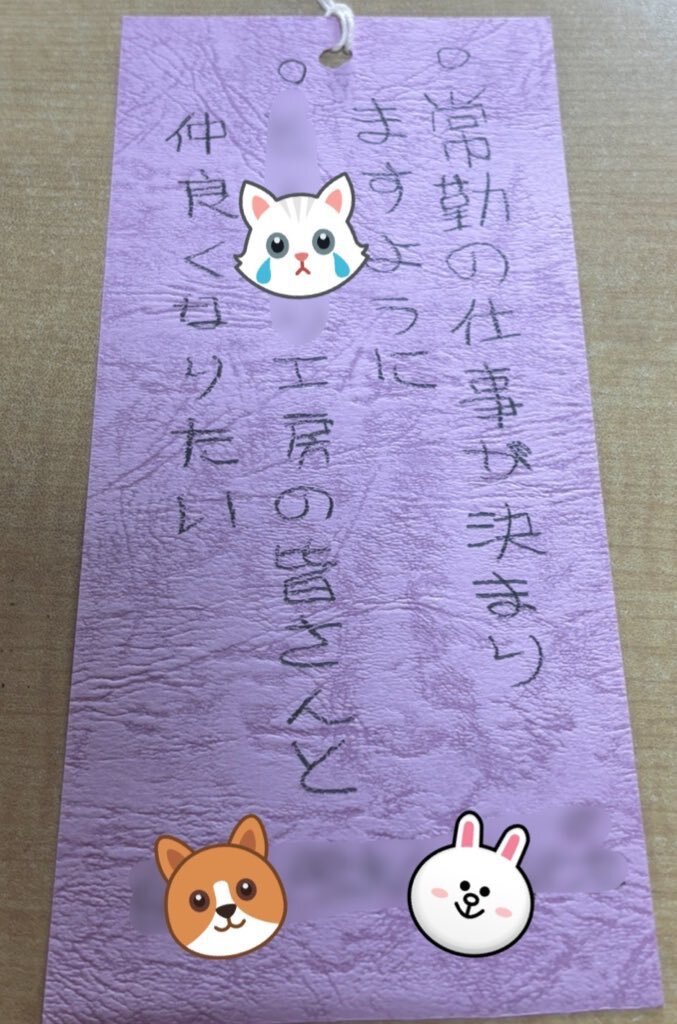 ○常勤の仕事が決まり
ますように
○工房の皆さんと
仲良くなりたい